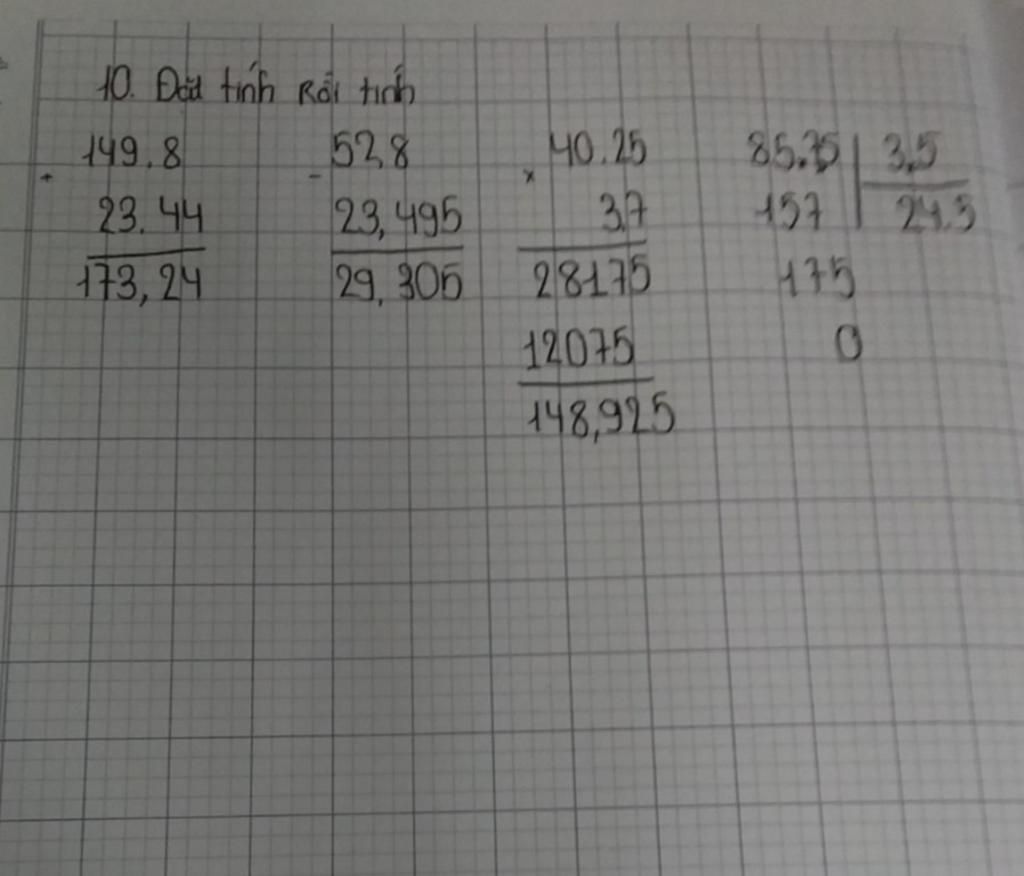 10. Đặt tính Rồi tính
149.8 52,8 40.25 85.75 3,5
+ - x
23.44 23,495 3,7 157 24.5
173,24 29,305 28175 175
12075 0
148,925